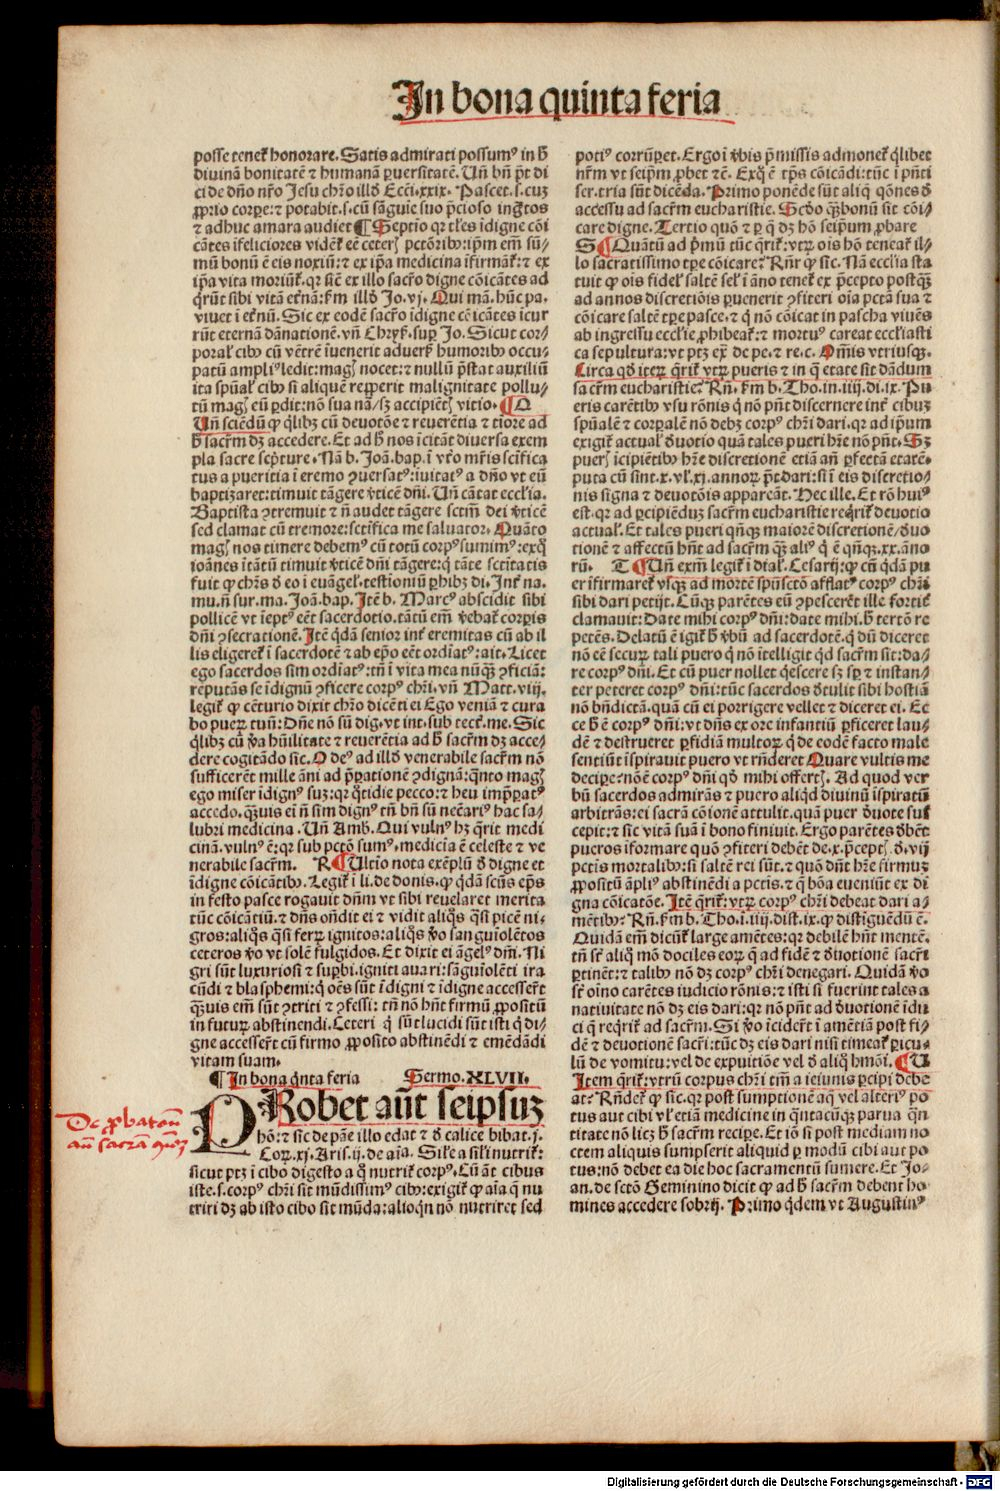 In bona quinta feria
posse tenet̃ honorare. Satis admirati possumꝰ in h̄
diuinā bonitatē ⁊ humanā ꝑuersitatē. Uñ bñ pt̄ di
ci de dño nr̄o Jesu chr̄o illđ Ecci. xxix. Pascet .s. cuꝫ
ꝓprio corꝑe: ⁊ potabit .s. cū sāguīe suo p̄cioso ingͣtos
⁊ adhuc amara audiet ¶ Septīo qꝛ tl̄es īdigne cōi
cātes īfeliciores vident̃ eē ceterꝭ pctōribꝰ: ip̄m em̄ sū-
mū bonū ē eis noxiū: ⁊ ex ip̄a medicina īfirmant̃: ⁊ ex
ip̄a vita moriunt̃. qꝛ sic̄ ex illo sacr̄o digne cōicātes ad
q̄rūt sibi vitā et̄nā: km̄ illđ Jo. vj. Qui mā. hūc pa.
viuet ī et̄nū. Sic ex eodē sacr̄o īdigne cōicātes īcur
rūt eternā dānationē. vñ Chrys̄. suꝑ Jo. Sicut cor-
poral̓ cibꝰ cū vētrē īuenerit aduerß humoribꝰ occu-
patū ampliꝰ ledit: magꝭ nocet: ⁊ nullū p̄stat auxiliū
ita spūal̓ cibꝰ si aliquē reꝑerit malignitate pollu-
tū magꝭ eū ꝑdit: nō sua nāˀ sꝫ accipiētꝭ vitio. ¶ Q
Uñ sciēdū ꝙ q̄libꝫ cū deuotōe ⁊ reuerētia ⁊ tiore ad
h̄ sacr̄m dꝫ accedere. Et ad h̄ nos īcitāt diuersa exem
pla sacre scp̄ture. Nā b. Joā. bap. ī vtr̄o mr̄is scīfica
tus a pueritia ī eremo ꝯuersatꝰ: īuitatꝰ a dño vt eū
baptizaret: timuit tāgere v̓ticē dñi. Uñ cātat eccl̄ia.
Baptista ꝯtremuit ⁊ ñ audet tāgere sctm̄ dei v̓ticē
sed clamat cū tremore: sctīfica me saluator. Quāto
magꝭ nos timere debemꝰ cū totū corpꝰ sumimꝰ: exꝙ
ioānes ītātū timuit v̓ticē dñi tāgere: q̄ tāte sctitatis
fuit ꝙ chr̄s đ eo ī euāgel̓. testioniū ꝑhibꝫ di. Int̃ na.
mu. ñ sur. ma. Joā. bap. Itē b. Marcꝰ abscidit sibi
pollicē vt īeptꝰ eēt sacerdotio. tātū em̄ v̓ebat̃ corꝑis
dñi ꝯsecrationē. Itē q̄dā senior int̃ eremitas cū ab il
lis eligeret̃ ī sacerdotē ⁊ ab ep̄o eēt ordīatꝰ: ait. Licet
ego sacerdos sim ordīatꝰ: tñ ī vita mea nūqͣꝫ ꝯficiā:
reputās se īdignū ꝯficere corpꝰ chr̄i. vñ Matt. viij.
legit̃ ꝙ cēturio dixit chr̄o dicēti ei Ego veniā ⁊ cura
bo pueꝝ tuū: Dñe nō sū dig. vt int. sub tect. me. Sic
q̄libꝫ cū v̓a hūilitate ⁊ reuerētia ad h̄ sacr̄m dꝫ acce-
dere cogitādo sic. O deꝰ ad illđ venerabile sacr̄m nō
sufficerēt mille āni ad p̄ꝑationē ꝯdignā: q̄nto magꝭ
ego miser īdignꝰ suꝫ: qꝛ q̄tidie pecco: ⁊ heu imp̄ꝑatꝰ
accedo. qͣꝫuis ei ñ sim dignꝰ tñ bñ sū nec̄ariꝰ hac sa-
lubri medicina. Uñ Amb. Qui vulnꝰ hꝫ q̄rit medi
cinā. vulnꝰ ē: qꝛ sub pctō sumꝰ. medicīa ē celeste ⁊ ve
nerabile sacr̄m. R ¶ Ultīo nota exēplū đ digne et
īdigne cōicātibꝰ. Legit̃ ī li. de donis. ꝙ q̄dā scūs ep̄s
in festo pasce rogauit dñm vt sibi reuelaret merita
tūc cōicātiū. ⁊ dñs oñdit ei ⁊ vidit aliq̄s q̄si picē ni-
gros: aliq̄s q̄si ferꝝ ignitos: aliq̄s v̓o sanguīolētos
ceteros v̓o vt solē fulgidos. Et dixit ei āgelꝰ dñi. Ni
gri sūt luxuriosi ⁊ suꝑbi. igniti auari: sāguīolēti ira
cūdi ⁊ blasphemi: q̄ oēs sūt īdigni ⁊ īdigne accesser̄t
qͣꝫuis em̄ sūt ꝯtriti ⁊ ꝯfessi: tñ nō hñt firmū ꝓpositū
in futuꝝ abstinendi. Ceteri q̄ sūt lucidi sūt isti q̄ di-
gne accesser̄t cū firmo ꝓposito abstinēdi ⁊ emēdādi
vitam suam.
¶ In bona q̄nta feria Sermo. XLVII.
PRobet aūt seipsuꝫ
hō: ⁊ sic de pāe illo edat ⁊ đ calice bibat. j.
Coꝝ. xj. Aris. ij. de aīa. Sile a sili nutrit̃:
sicut ptꝫ ī cibo digesto a q̄ nutrit̃ corpꝰ. Cū āt cibus
iste .s. corpꝰ chr̄i sit mūdissimꝰ cibꝰ: exigit̃ ꝙ aīa q̄ nu
triri dꝫ ab isto cibo sit mūda: alioq̄n nō nutriret sed
De ꝓbatōn
an̄ sacrā
potiꝰ corrūꝑet. Ergo ī v̓bis p̄missis admonet̃ q̄libet
nr̄m vt seip̄m ꝓbet ⁊c̄. Exq̄ ē tp̄s cōicādi: tūc ī pn̄ti
ser. tria sūt dicēda. Primo ponēde sūt aliq̄ q̄ōnes đ
accessu ad sacr̄m eucharistie. Scđo qͣꝫ bonū sit cōi-
care digne. Tertio quō ⁊ ꝑ q̄ dꝫ hō seip̄um ꝓbare
S ¶ Quātū ad p̄mū tūc q̄rit̃: vtꝝ oīs hō teneat̃ il-
lo sacratissimo tꝑe cōicare? Rñr̄ ꝙ sic. Nā eccl̄ia sta
tuit ꝙ oīs fidel̓ saltē sel̓ ī āno tenet̃ ex p̄cepto postqͣꝫ
ad annos discretiōis ꝑuenerit ꝯfiteri oīa pctā sua ⁊
cōicare saltē tꝑe pasce. ⁊ q̄ nō cōicat in pascha viuēs
ab ingressu eccl̄ie ꝓhibeat̃: ⁊ mortuꝰ careat eccl̄iasti
ca sepultura: vt ptꝫ ex̄ de pe. ⁊ re. c. Om̄is vtriusqꝫ.
Circa qđ iteꝝ q̄rit̃ vtꝝ pueris ⁊ in q̄ etate sit dādum
sacr̄m eucharistie? Rñ. km̄ b. Tho. in. iiij. di. ix. Pu
eris carētibꝰ vsu rōnis q̄ nō pñt discernere int̃ cibuꝫ
spūalē ⁊ corꝑalē nō debꝫ corpꝰ chr̄i dari. qꝛ ad ip̄um
exigit̃ actual̓ đuotio quā tales pueri hr̄e nō pñt. Sꝫ
puerꝭ īcipiētibꝰ hr̄e discretionē etiā añ ꝑfectā etatē.
puta cū sint. x. vl̓. xj. annoꝝ pt̄ dari: si ī eis discretio-
nis signa ⁊ deuotōis appareāt. Hec ille. Et rō huiꝰ
est. qꝛ ad ꝑcipiēduꝫ sacr̄m eucharistie req̄rit̃ deuotio
actual̓. Et tales pueri qn̄qꝫ maiorē discretionē ⁊ đuo
tionē ⁊ affectū hñt ad sacr̄m qͣꝫ aliꝰ q̄ ē qn̄qꝫ. xx. āno
rū. T ¶ Uñ exm̄ legit̃ ī dial̓. Cesarij: ꝙ cū q̄dā pu
er īfirmaret̃ vsqꝫ ad mortē spūsctō afflatꝰ corpꝰ chr̄i
sibi dari petijt. Cūqꝫ parētes eū ꝯpescerēt ille fortit̃
clamauit: Date mihi corpꝰ dñi: date mihi. h̄ tertō re
petēs. Delatū ē igit̃ h̄ v̓bū ad sacerdotē. q̄ dū diceret
nō eē securū tali puero q̄ nō ītelligit qđ sacr̄m sit: da-
re corpꝰ dñi. Et cū puer nollet q̄escere sꝫ sꝑ ⁊ instan-
ter peteret corpꝰ dñi: tūc sacerdos đtulit sibi hostiā
nō bñdictā. quā cū ei porrigere vellet ⁊ diceret ei. Ec
ce h̄ ē corpꝰ dñi: vt dñs ex ore infantiū ꝑficeret lau-
dē ⁊ destrueret ꝑfidiā multoꝝ q̄ de eodē facto male
sentiūt īspirauit puero vt rñderet Quare vultis me
decipe? nō ē corpꝰ dñi qđ mihi offertꝭ. Ad quod ver
bū sacerdos admirās ⁊ puero aliqđ diuinū īspiratū
arbitrās: ei sacrā cōionē attulit. quā puer đuote sus
cepit: ⁊ sic vitā suā ī bono finiuit. Ergo parētes đbēt
pueros īformare quō ꝯfiteri debēt de. x. p̄ceptꝭ. đ. vij
pctis mortalibꝰ: si saltē rei sūt. ⁊ quō dn̄t hr̄e firmuꝫ
ꝓpositū āpliꝰ abstinēdi a pctis. ⁊ q̄ bōa eueniūt ex di
gna cōicatōe. Itē q̄rit̃: vtꝝ corpꝰ chr̄i debeat dari a-
mētibꝰ? Rñ. km̄ b. Tho. ī. iiij. dist. ix. ꝙ distīguēdū ē.
Quidā em̄ dicūt̃ large amētes: qꝛ debilē hñt mentē.
tñ sr̄ aliq̄ mō dociles eoꝝ q̄ ad fidē ⁊ đuotionē sacr̄i
ꝑtinēt: ⁊ talibꝰ nō dꝫ corpꝰ chr̄i denegari. Quidā v̓o
sr̄ oīno carētes iudicio rōnis: ⁊ isti si fuerint tales a
natiuitate nō dꝫ eis dari: qꝛ nō pñt ad đuotionē īdu
ci q̄ req̄rit̃ ad sacr̄m. Si v̓o īciderēt ī amētiā post fi-
dē ⁊ deuotionē sacr̄i: tūc dꝫ eis dari nisi timeat̃ ꝑicu-
lū de vomitu: vel de expuitiōe vel đ aliq̄ hmōi. ¶ U
Item q̄rit̃: vtrū corpus chr̄i tm̄ a ieiunis ꝑcipi debe
at? Rñdet̃ ꝙ sic. qꝛ post sumptionē aq̄ vel alteriꝰ po
tus aut cibi vl̓ etiā medicine in q̄ntacūqꝫ parua q̄n
titate nō licꝫ h̄ sacr̄m recipe. Et iō si post mediam no
ctem aliquis sumpserit aliquid ꝑ modū cibi aut po
tus: nō debet ea die hoc sacramentū sumere. Et Jo-
an. de sctō Geminino dicit ꝙ ad h̄ sacr̄m debent ho
mines accedere sobrij. Primo q̄dem vt Augustinꝰ
Digitalisierung gefördert durch die Deutsche Forschungsgemeinschaft - DFG